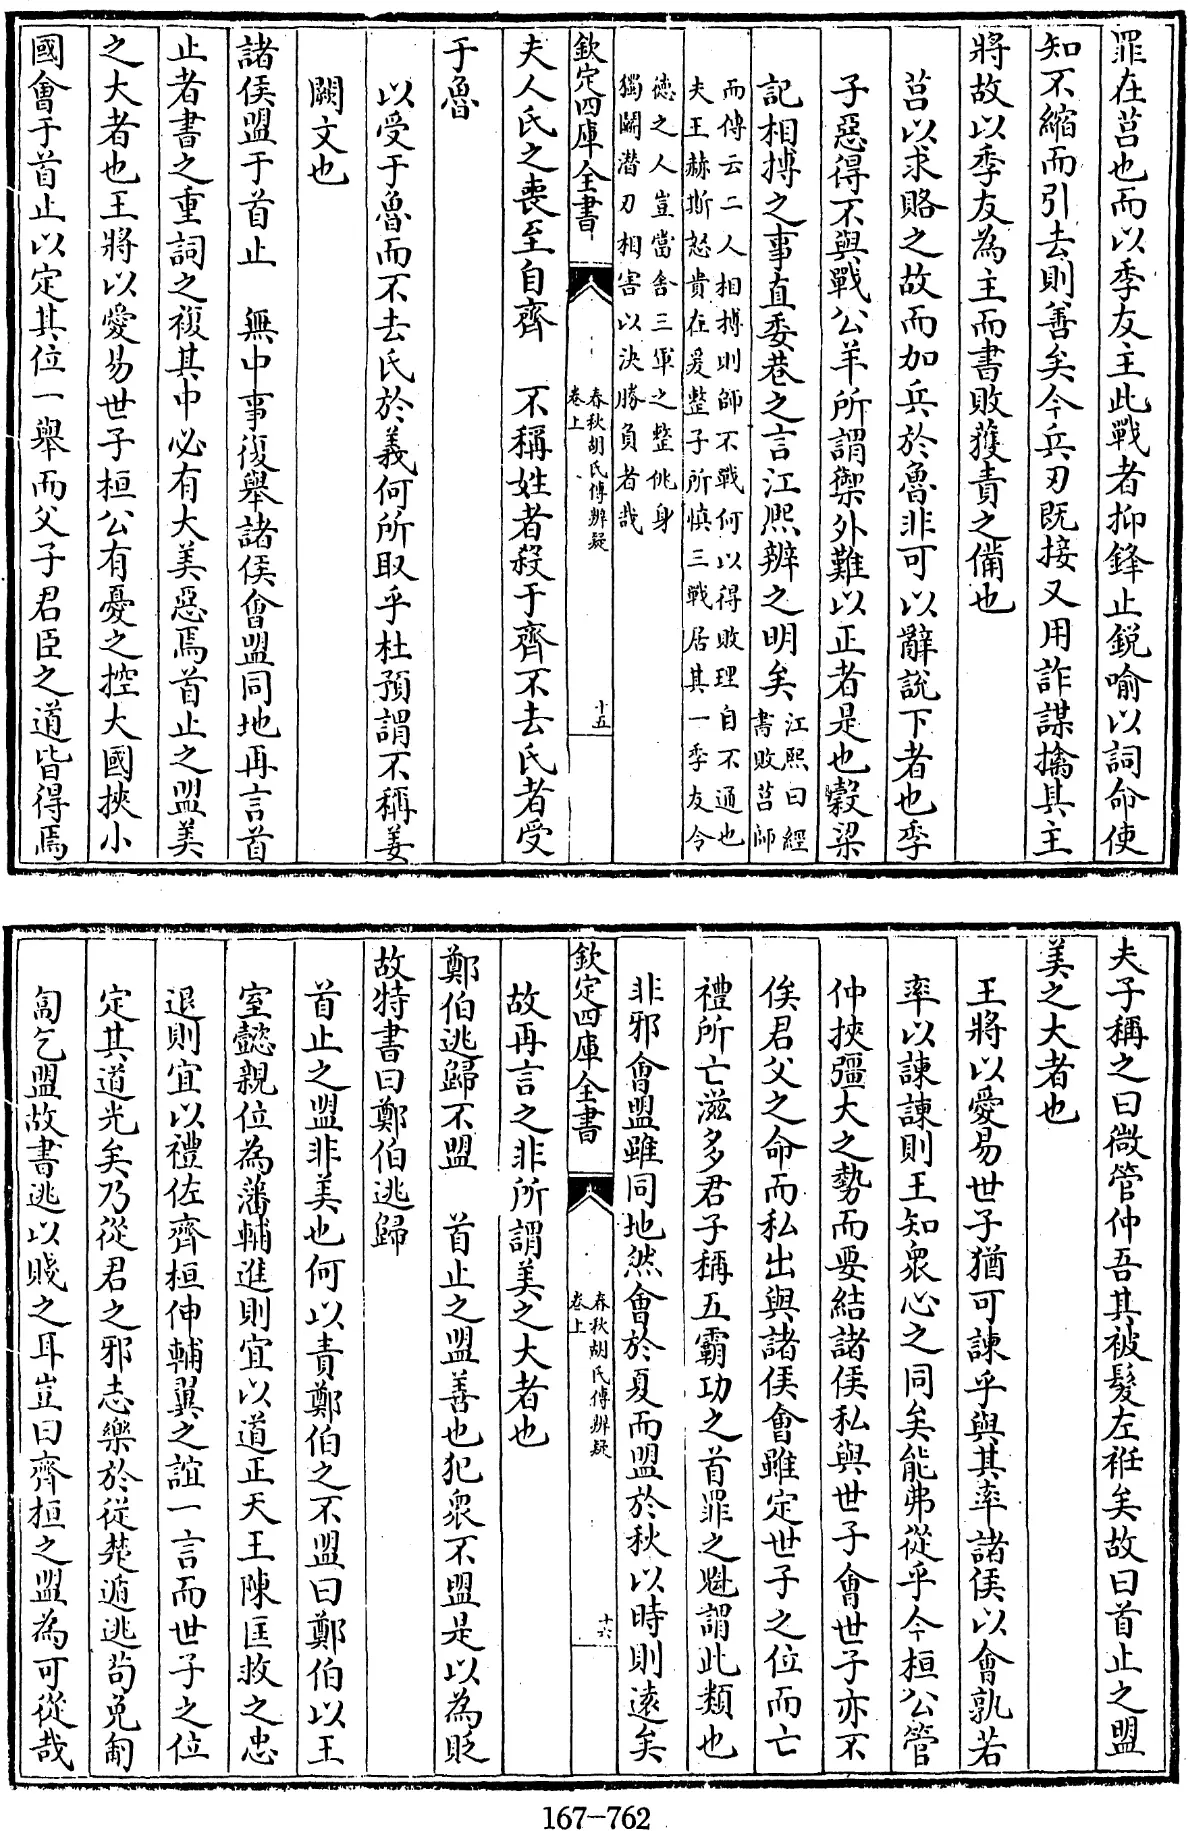 罪在莒也而以季友主此戰者抑鋒止銳喻以詞命使
知不縮而引去則善矣今兵刃既接又用詐謀擒其主
將故以季友為主而書敗獲責之備也
莒以求賂之故而加兵於魯非可以辭說下者也季
子惡得不與戰公羊所謂禦外難以正者是也穀梁
記相搏之事直委巷之言江熙辨之明矣江熙曰經書敗莒師
而傳云二人相搏則師不戰何以得敗理自不通也
夫王赫斯怒貴在爰整子所慎三戰居其一季友令
徳之人豈當舎三軍之整佻身
獨鬬潜刃相害以決勝負者哉
欽定四庫全書
春秋胡氏傳辨疑
卷上
十五
夫人氏之喪至自齊 不稱姓者殺于齊不去氏者受
于魯
以受于魯而不去氏於義何所取乎杜預謂不稱姜
闕文也
諸侯盟于首止 無中事復舉諸侯會盟同地再言首
止者書之重詞之複其中必有大美惡焉首止之盟美
之大者也王將以愛易世子桓公有憂之控大國挾小
國會于首止以定其位一舉而父子君臣之道皆得焉
夫子稱之曰微管仲吾其被髮左袵矣故曰首止之盟
美之大者也
王將以愛易世子猶可諫乎與其率諸侯以會孰若
率以諫諫則王知衆心之同矣能弗從乎今桓公管
仲挾彊大之勢而要結諸侯私與世子會世子亦不
俟君父之命而私出與諸侯會雖定世子之位而亡
禮所亡滋多君子稱五霸功之首罪之魁謂此類也
非邪會盟雖同地然會於夏而盟於秋以時則遠矣
欽定四庫全書
春秋胡氏傳辨疑
卷上
十六
故再言之非所謂美之大者也
鄭伯逃歸不盟 首止之盟善也犯衆不盟是以為貶
故特書曰鄭伯逃歸
首止之盟非美也何以責鄭伯之不盟曰鄭伯以王
室懿親位為藩輔進則宜以道正天王陳匡救之忠
退則宜以禮佐齊桓伸輔翼之誼一言而世子之位
定其道光矣乃從君之邪志樂於從楚遁逃苟免匄
匄乞盟故書逃以賤之耳豈曰齊桓之盟為可從哉
167-762